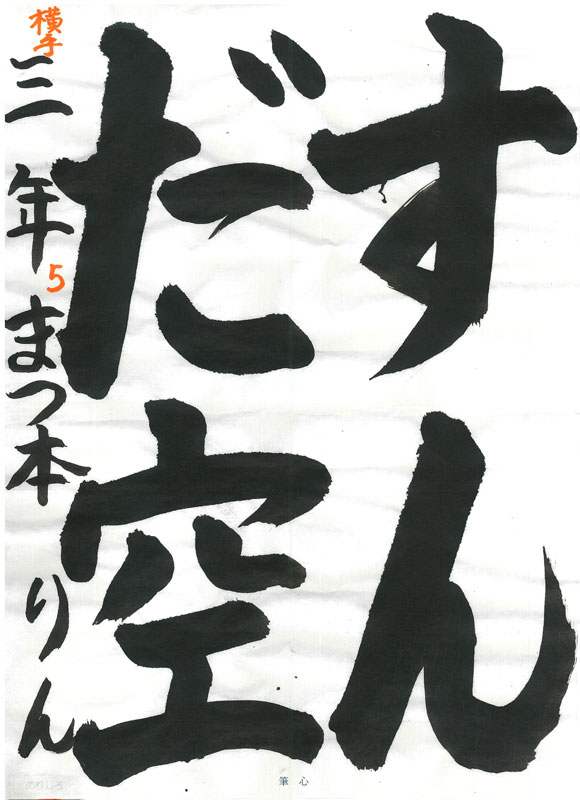 すん
だ空
横手
三年5まつ本りん
筆心
のりしろ